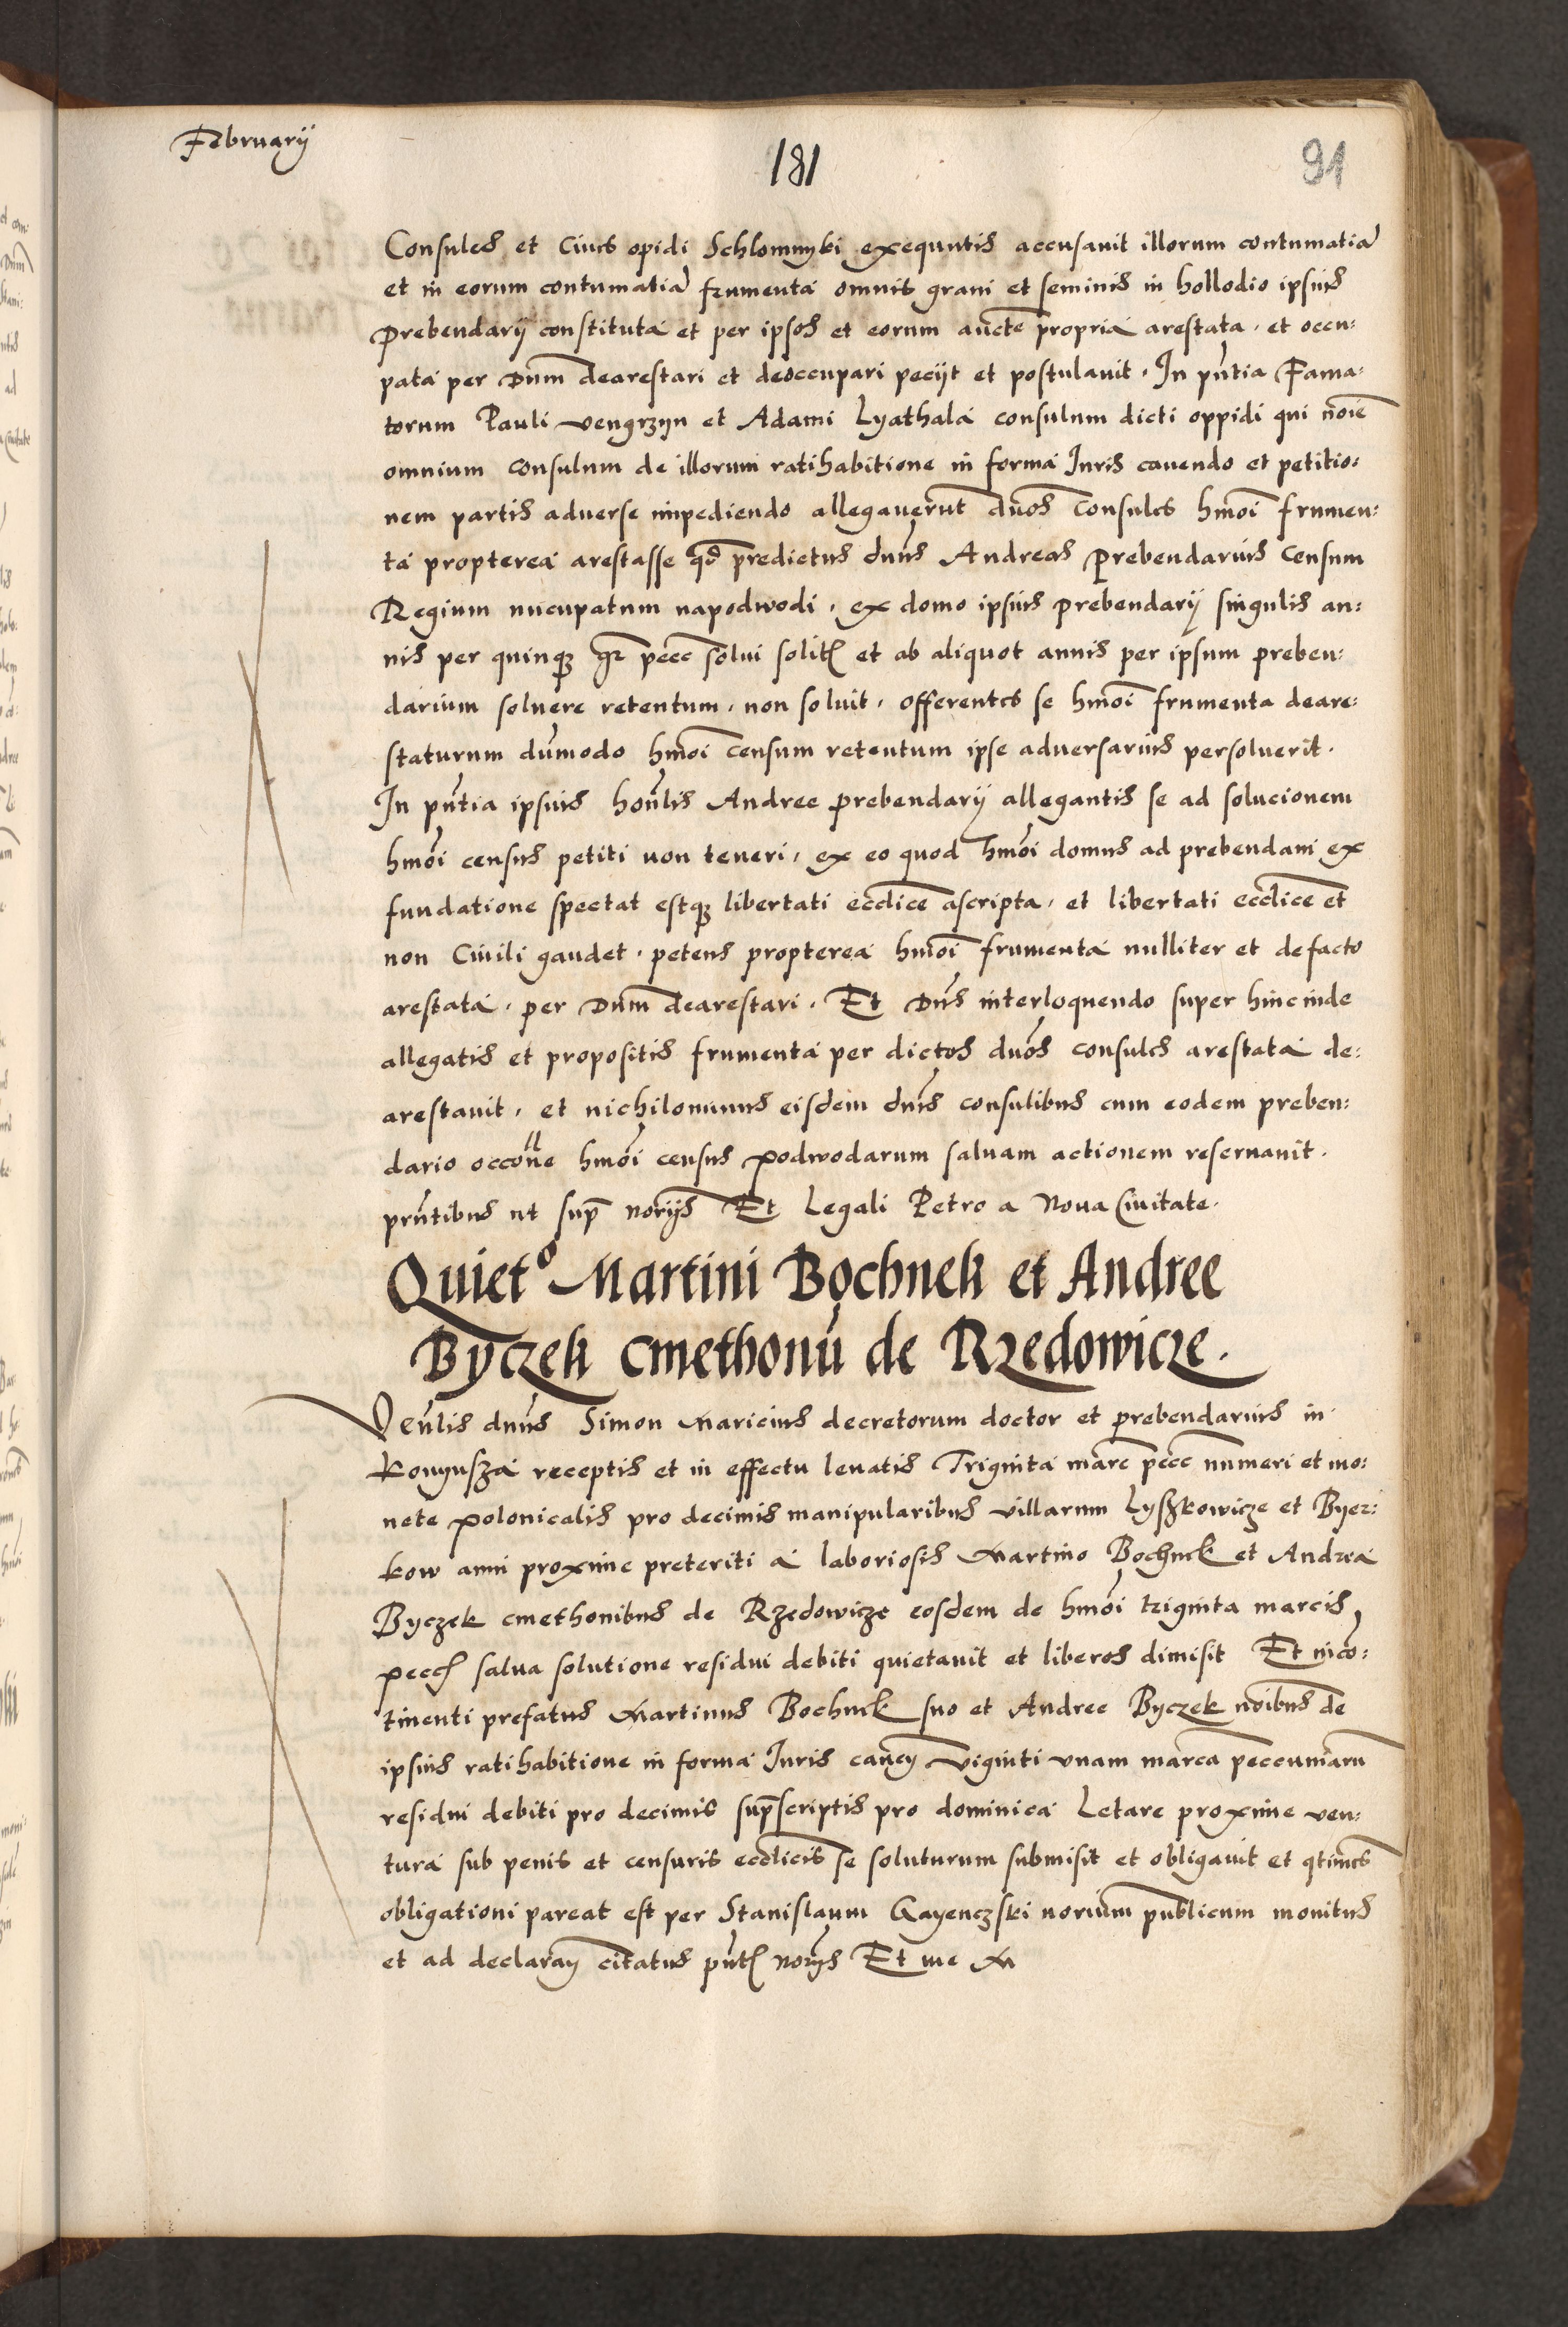 Februarij
181
91
Consules et Cives opidi Schlomnyki exequutis accusavit illorum contumatiã
et in eorum contumatiã frumenta omnis grani et seminis in hollodio ipsius
prebendarij constituta et per ipsos et eorum aucte propria arestata, et occu:
pata per Dnm dearestari et deoccupari pecijt et postulavit. In pntia Fama:
torum Pauli Vengrzyn et Adami Lyathala consulum dicti oppidi qui noie
omnium Consulum de illorum ratihabitione in forma Juris cavendo et petitio:
nem partis adverse impediendo allegaverut duos Consules hmoi frumen:
ta propterea arestasse qd predictus dnus Andreas Prebendarius Censum
Regium nucupatum napodwodi, ex domo ipsius prebendarij singulis an:
nis per quinqz gr pecc solui solit et ab aliquot annis per ipsum preben:
darium solvere retentum, non solvit, offerentes se hmoi frumenta deare:
staturum dumodo hmoi censum retentum ipse adversarius persolverit.
In pntia ipsius honlis Andree prebendarij allegantis se ad solucionem
hmoi census petiti non teneri, ex eo quod hmoi domus ad prebendam ex
fundatione spectat estqz libertati ecclice ascripta, et libertati ecclice et
non Civili gaudet. petens propterea hmoi frumenta nulliter et de facto
arestata, per Dnm dearestari. Et Dns interloquendo super hinc inde
allegatis et propositis frumenta per dictos duos consules arestata de:
arestavit, et nichilominus eisdem dnis consulibus cum eodem preben:
dario occone hmoi census podwodarum salvam actionem reservavit.
prntibus ut sup norijs Et Legali Petro a Nova Civitate.
Quieto Martini Bochnek et Andree
Byczek cmethonũ de Rzedowicze.
Venlis dnus Simon Maricius decretorum doctor et prebendarius in
Konyusza receptis et in effectu levatis Triginta marc pecc numeri et mo:
nete polonicalis pro decimis manipularibus villarum Lyszkowicze et Byer:
kow anni proxime preteriti a laboriosis Martino Bochnek et Andrea
Byczek cmethonibus de Rzedowicze eosdem de hmoi triginta marcis
pecc salva solutione residui debiti quietavit et liberos dimisit Et inco:
tinenti prefatus Martinus Bochnek suo et Andree Byczek noibus de
ipsius ratihabitione in forma Juris Viginti unam marca peccuniaru
residui debiti pro decimis supscriptis pro dominica Letare proxime ven:
tura sub penis et censuris ecclicis se soluturum submisit et obligavit et
obligationi pareat est per Stanislaum Gayenczski norium publicum monitus
et ad citatus pntz norijs Et me M